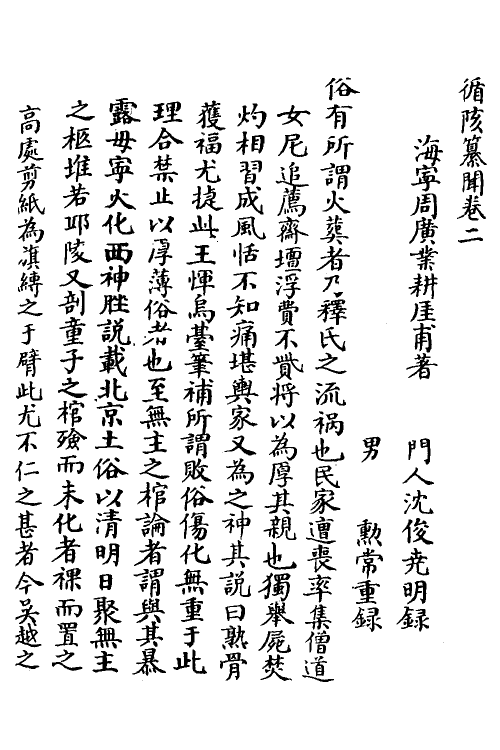 循陔纂聞卷二
海寧周廣業耕厓甫著
門人沈俊尭明録
男
勲常重録
俗有所謂火葬者乃釋氏之流祸也民家遭喪率集僧道
女尼追薦齋壇浮費不貲将以為厚其親也獨舉屍焚
灼相習成風恬不知痛堪輿家又為之神其説曰熟骨
蒦福尤捷此王惲烏臺筆補所謂敗俗傷化無重于此
理合禁止以厚薄俗者也至無主之棺論者謂與其暴
露毋寧火化西神脞説載北京土俗以清明日聚無主
之柩堆若邱陵又剖童子之棺殮而未化者裸而置之
高處剪紙為旗縛之于臂此尤不仁之甚者今吴越之